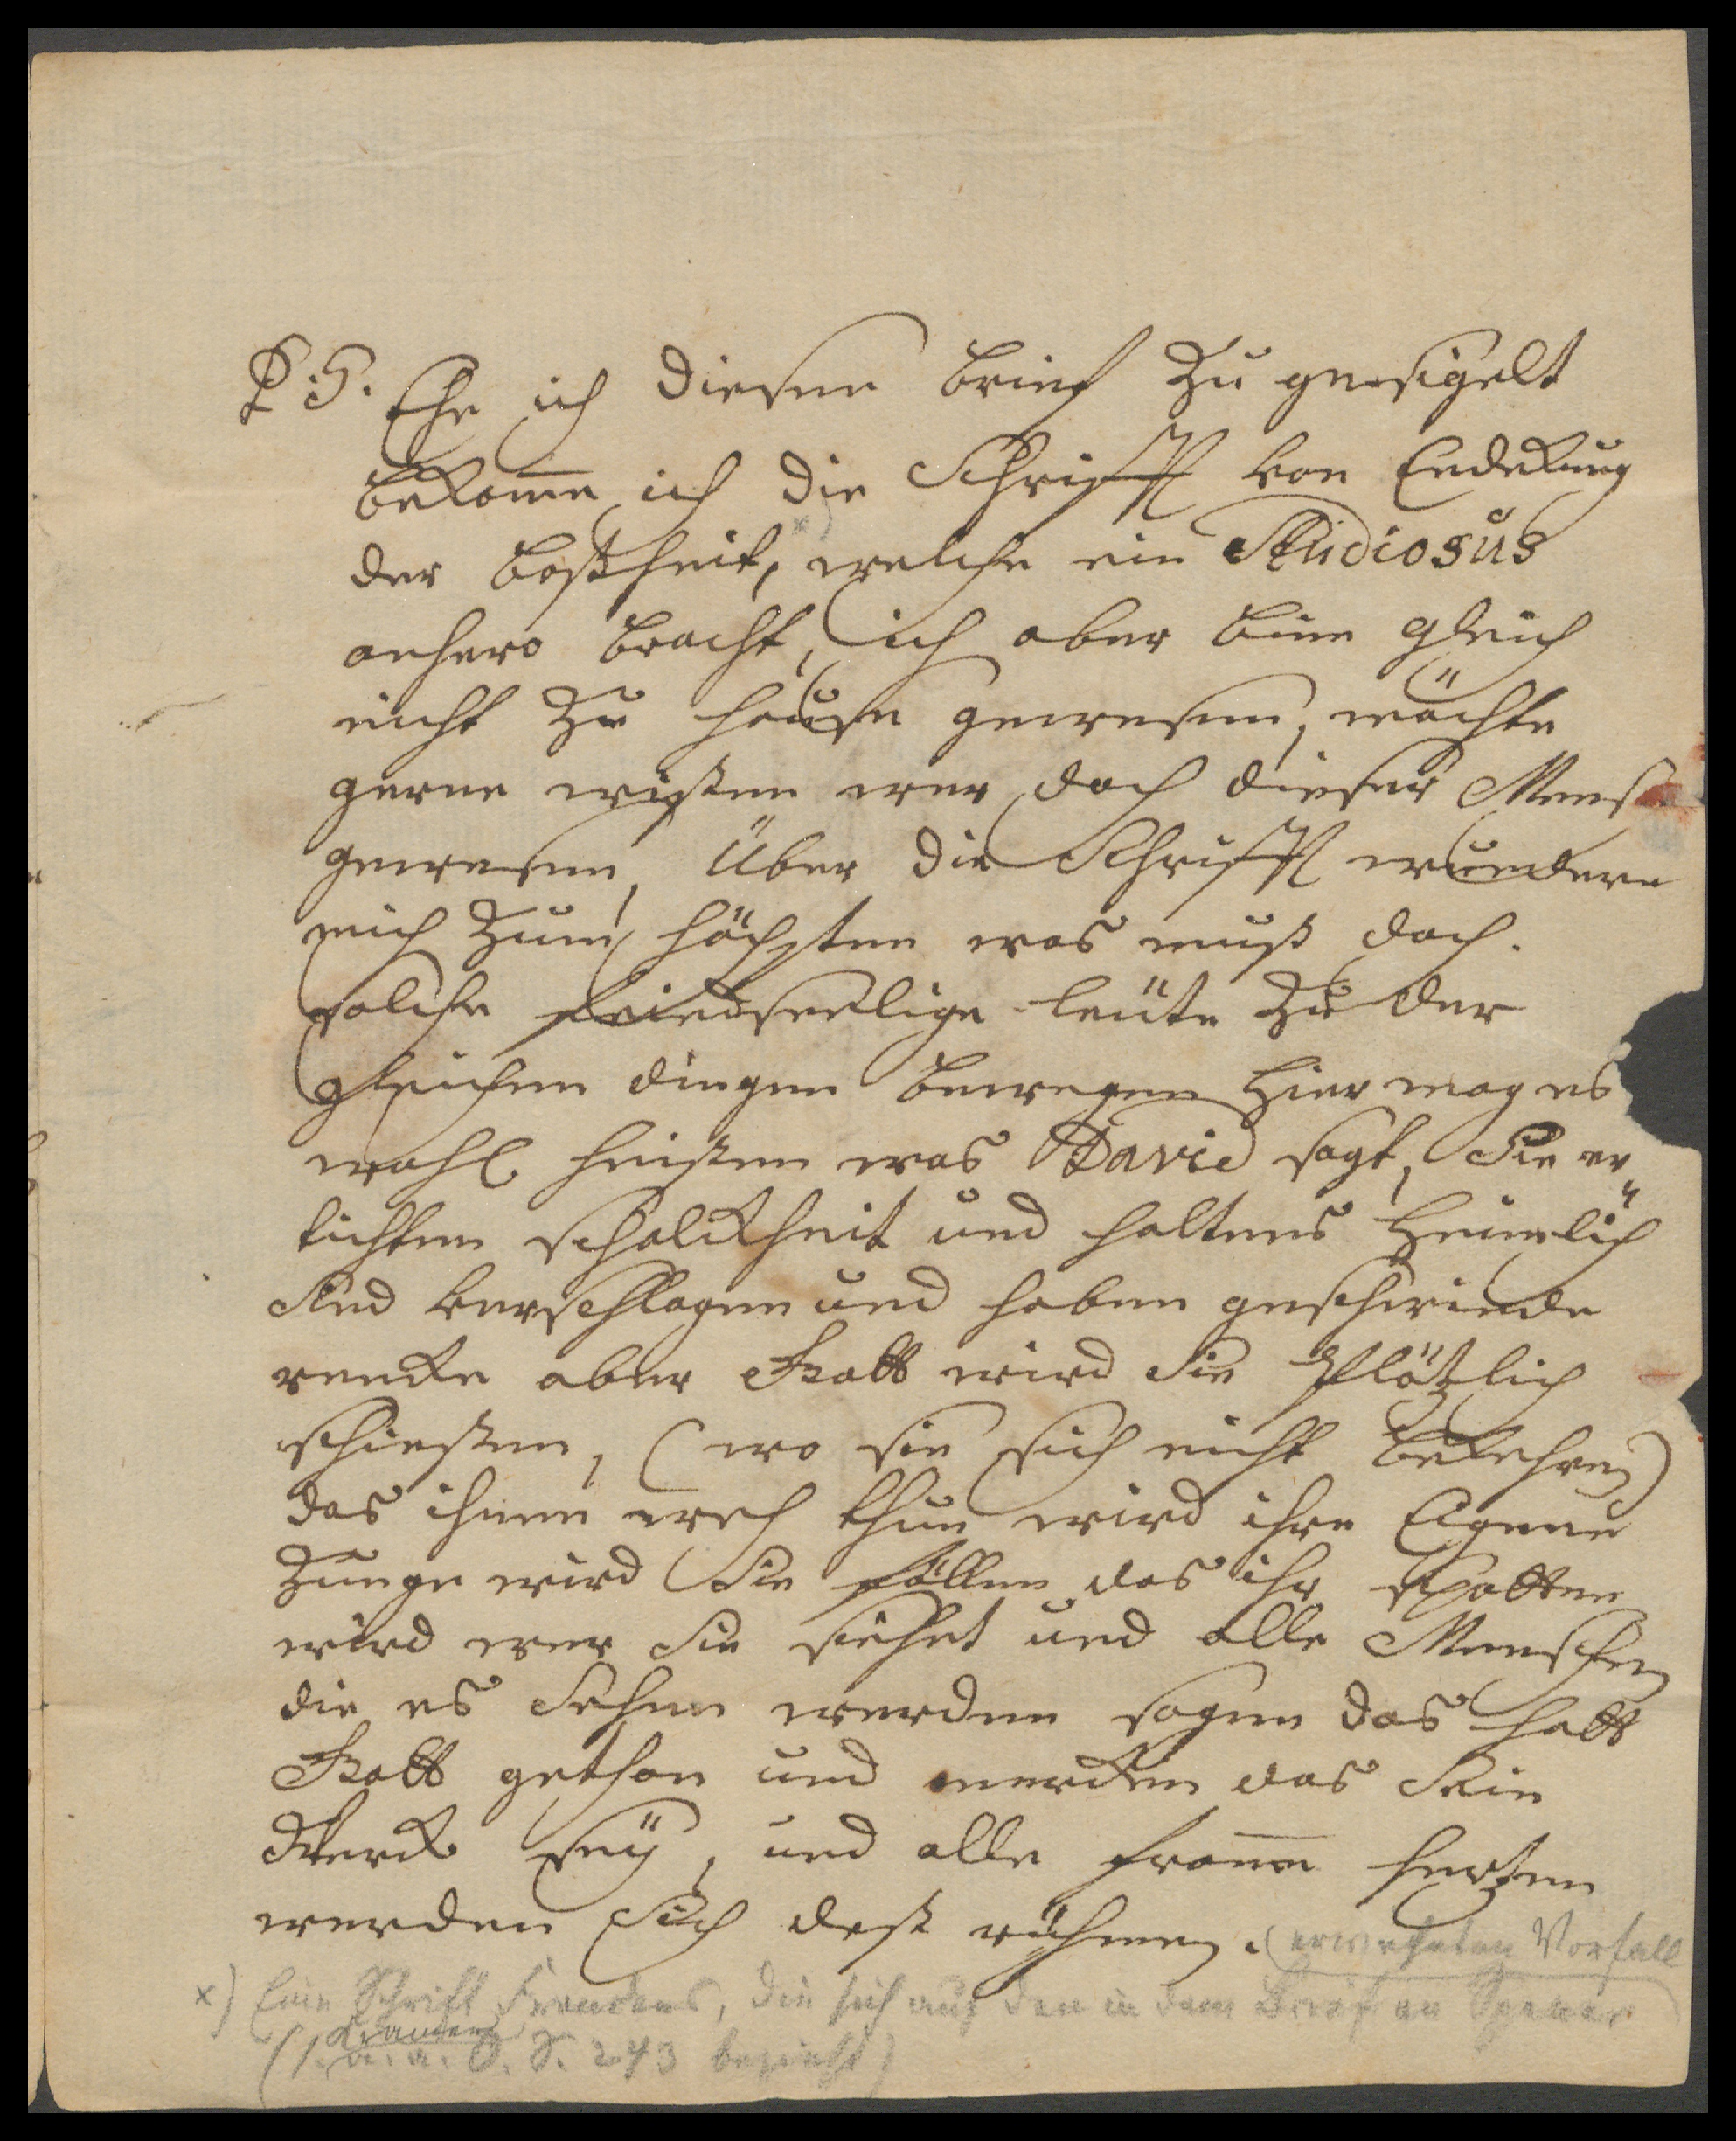 P S. Ehe ich diesen brief zu gesigelt
bekome ich die Schrifft von Endekung
der boßheit, x) welche ein Studiosus
anhero bracht, ich aber binn gleich
nicht zu hause gewesen, möchte
gerne wißen wer doch dieser Mensch
gewesen, Über die Schrifft wundere
mich zum höchsten was muß doch
solche feindseelige leüte zu der
gleichen dingen bewegen hier mag es
wohl heißen was David sagt, Sie er
tichten schalckheit und haltens heimlich
Sind verschlagen und haben geschwinde
rencke aber Gott wird Sie Plötzlich
schießen, (wo sie sich nicht bekehren)
das ihnen weh thun wird ihre Eigene
Zunge wird Sie fällen das ihr spotten
wird wer Sie siehet und alle Menschen
die es Sehen werden sagen das hatt
Gott gethan und mercken das Sein
Werck seÿ, und alle frome hertzen
werden Sich deß rühmen. (erwähnten Vorfall
x) Eine Schrift Franckens, die sich auf den in dem Brief an Spener
Kramer
(s. a. a. O. S. 243 bezieht)